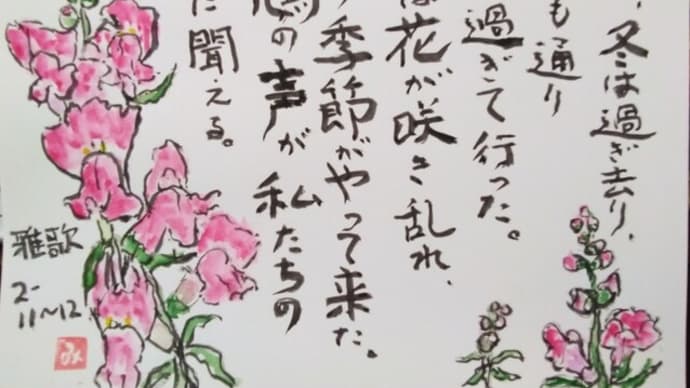 、冬は過ぎ去り、
も通り
過ぎて行った。
は花が咲き乱れ、
季節がやって来た。
の声が私たちの
に聞える。
雅歌
2-
11~12